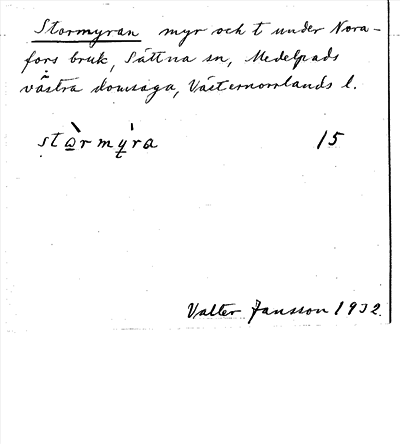 Stormyran myr och t under Nora-
fors bruk, Sättna sn, Medelpads
västra domsaga, Västernorrlands l.
stòrmýra 15
Valter Jansson 1932.